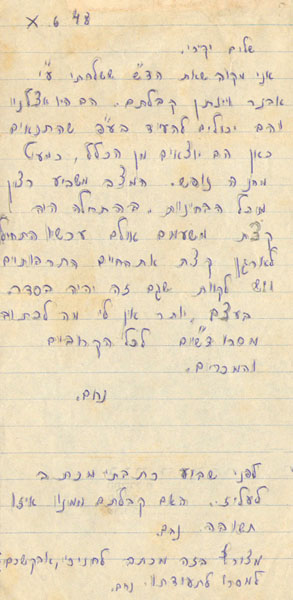 X 6 48
שלום יקירי.
אני מקוה שאת הד"ש ששלחתי ע"י
אבנר ויונתן קבלתם. הם היו אצלנו
והם יכולים להעיד בע"פ שהתנאים
כאן הם יוצאים מן הכלל, כמעט
מחנה נופש. המצב משביע רצון
מכל הבחינות. בהתחלה היה
קצת משעמם אולם עכשיו התחילו
לארגן קצת את החיים התרבותיים
ויש לקוות שגם זה יהיה בסדר.
בעצם, יותר אין לי מה לכתוב
מסרו ד"שים לכל הקרובים
והמכרים.
נחם.
לפני שבוע כתבתי מכתב
לעליזה. האם קבלתם ממנו איזו
תשובה. נחם.
מצורף בזה מכתב לחניכי, אבקשכם
למסרו לתעודתו. נחם.